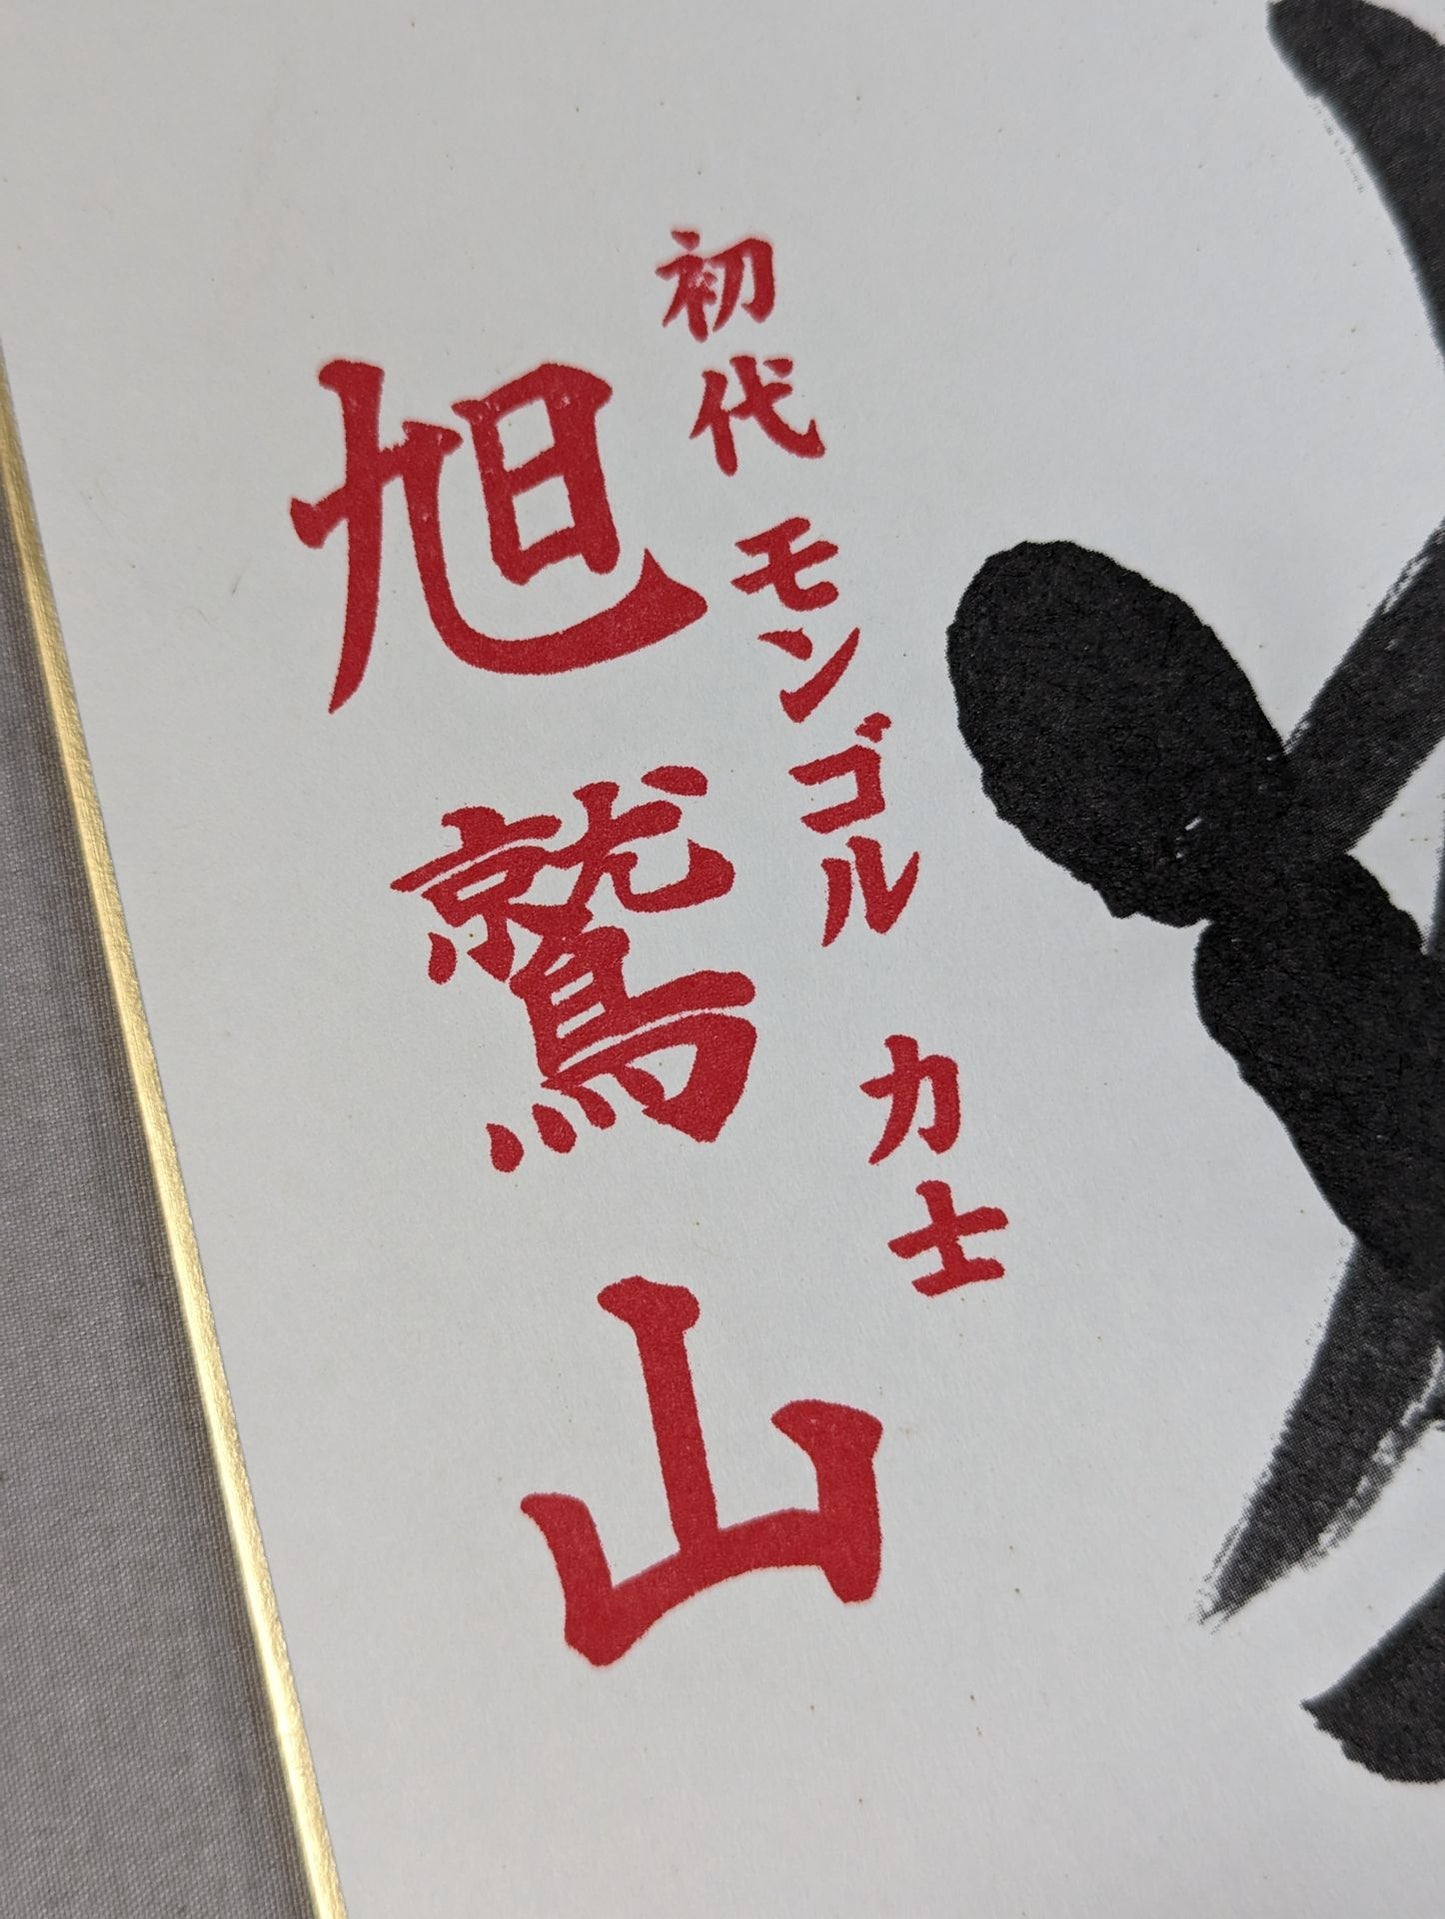 初代 モンゴル 力士
旭鷲山